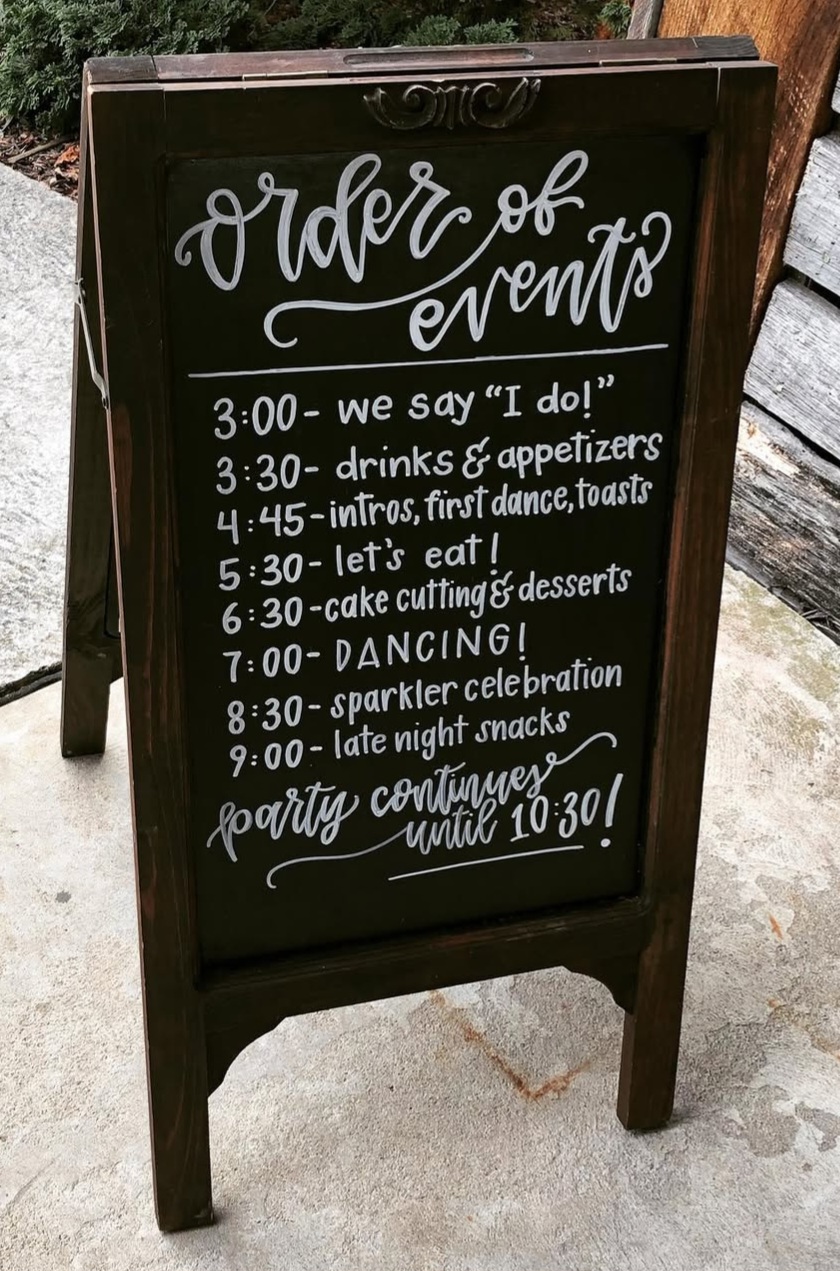 order of
events
3:00- we say "I do!"
3:30- drinks & appetizers
4:45-intros, first dance, toasts
5:30- let's eat!
6:30-cake cutting & desserts
7:00- DANCING!
8:30- sparkler celebration
9:00- late night snacks
party continues
until 10:30!